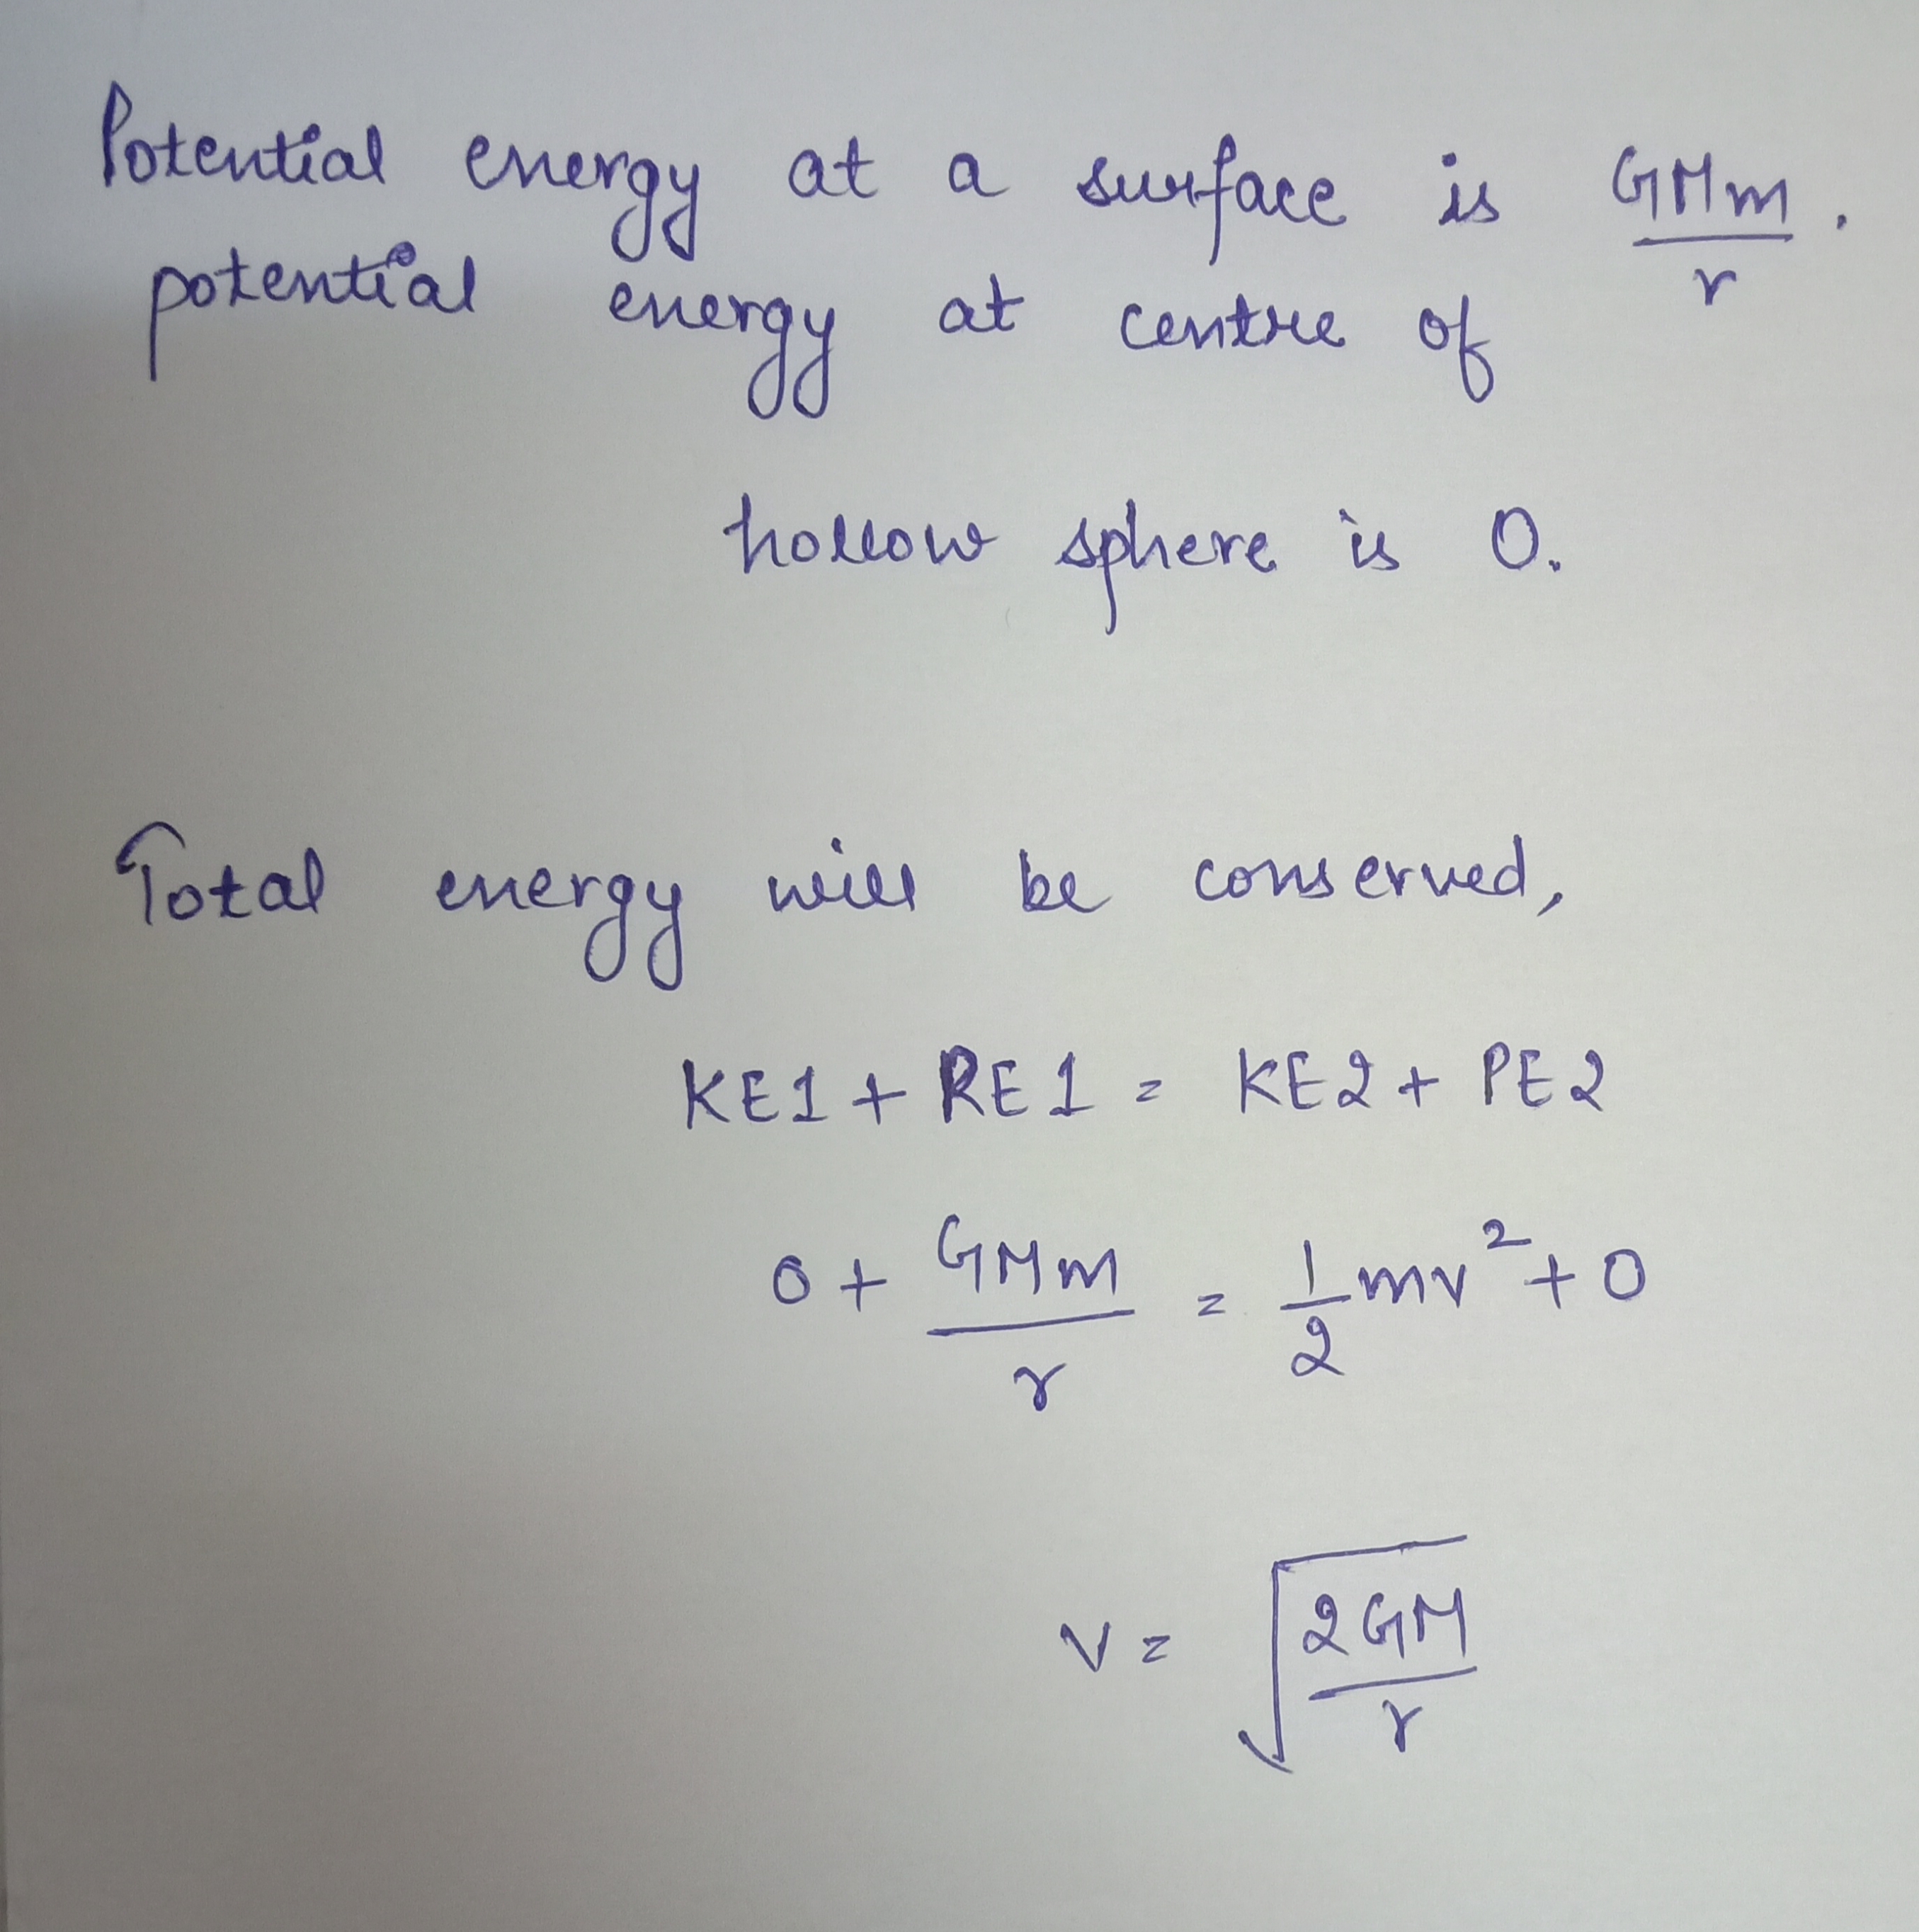 Potential energy at a surface is GMm/r.
potential energy at centre of
hollow sphere is 0.
Total energy will be conserved,
KE1 + PE1 = KE2 + PE2
0 + GMm/r = 1/2 mv² + 0
v = √(2GM/r)